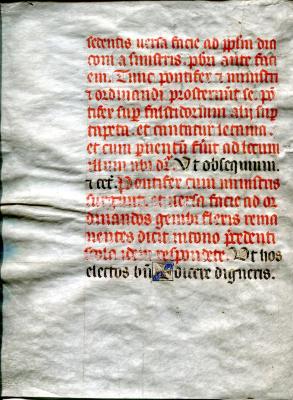 sedentis versa facie ad ipsum dia
cona sinistris. psbri ante faci
em. Tunc pontifex et ministri
et ordinandi prosternunt se. pō
tifex sup falditorium alii sup
tapeta. et cantatur letania.
et cum pventū fuit ad locum
illum ubi dr. Vt obsequium.
et cet. Pontifex cum ministris
surgunt et versa facie ad or
dinandos genibus flexis rema
nentes dicit in tono pcedenti
scola idem respondete. Vt hos
electos bn dicere digneris.